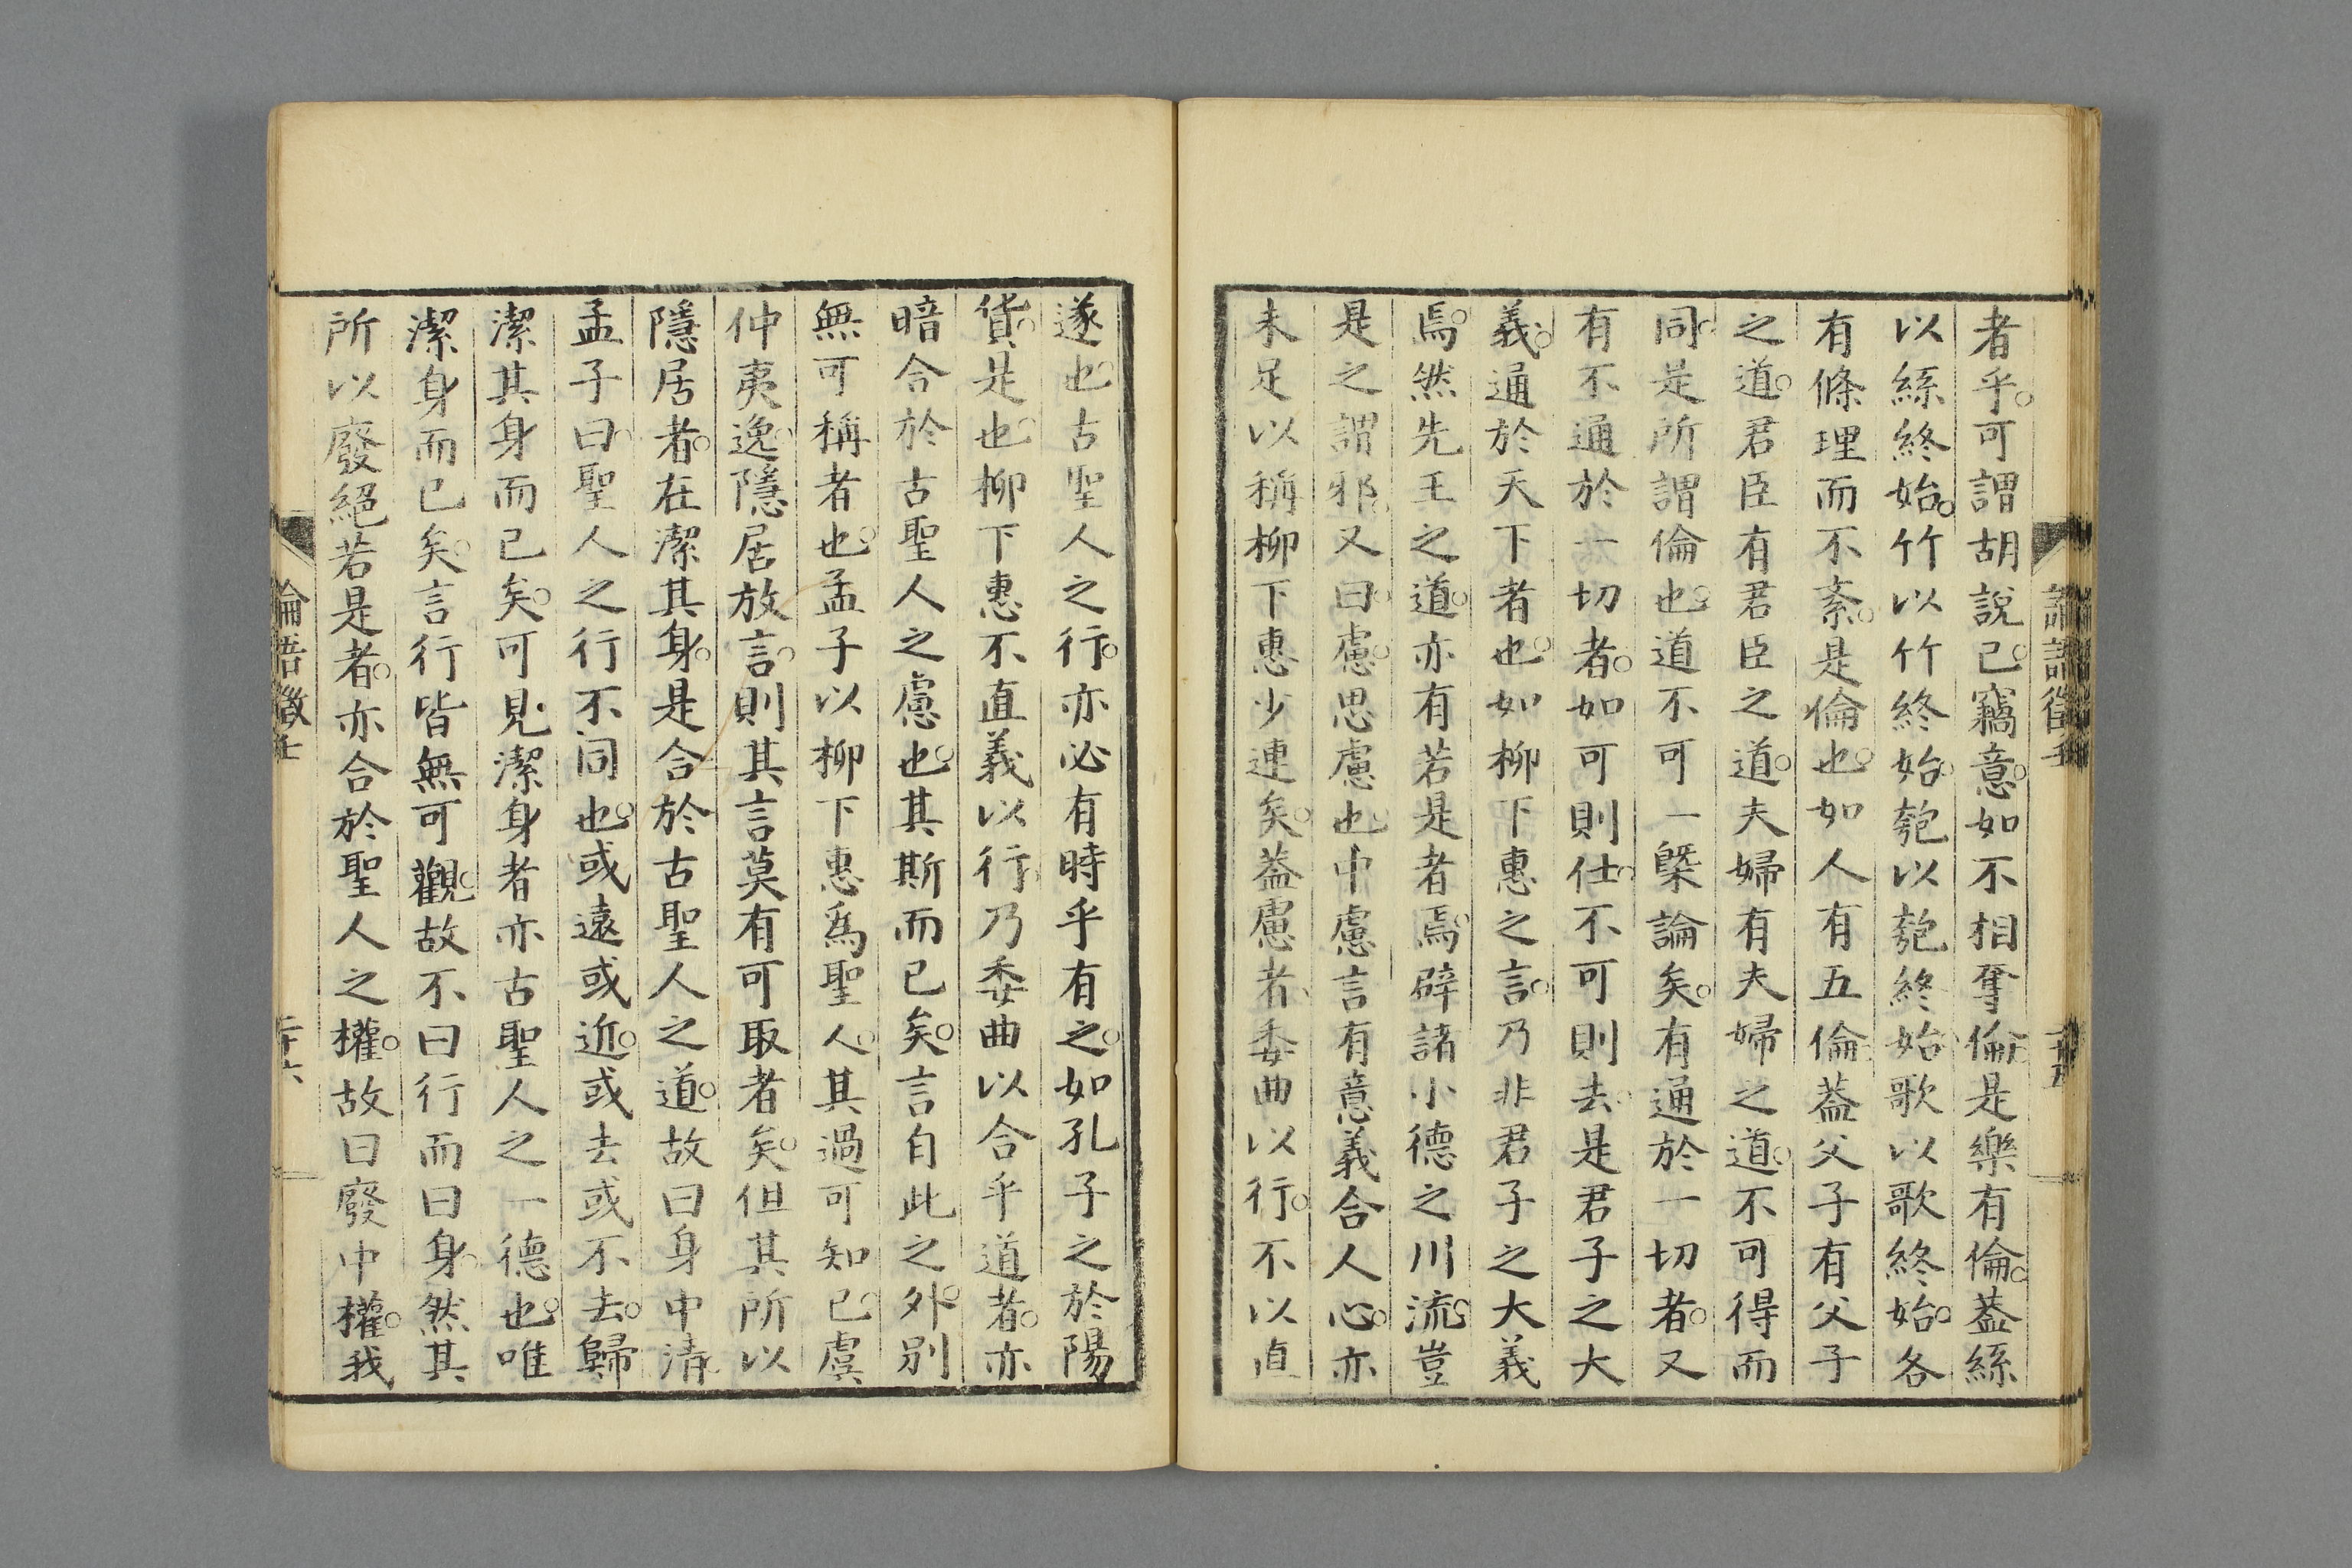 者乎。可謂胡說已。竊意。如不相奪倫。是樂有倫。蓋絲
以絲終始。竹以竹終始。匏以匏終始。歌以歌終始。各
有條理而不紊。是倫也。如人有五倫。蓋父子有父子
之道。君臣有君臣之道。夫婦有夫婦之道。不可得而
同。是所謂倫也。道不可一槩論矣。有通於一切者。又
有不通於一切者。如可則仕。不可則去。是君子之大
義。通於天下者也。如柳下惠之言。乃非君子之大義
焉。然先王之道。亦有若是者焉。辟諸小德之川流。豈
是之謂邪。又曰。慮。思慮也。中慮言有意義合人心。亦
未足以稱柳下惠少連矣。蓋慮者、委曲以行。不以直
遂也。古聖人之行。亦必有時乎有之。如孔子之於陽
貨。是也。柳下惠不直義以行。乃委曲以合乎道者。亦
暗合於古聖人之慮也。其斯而已矣。言自此之外。別
無可稱者也。孟子以柳下惠爲聖人。其過可知已。虞
仲夷逸。隱居放言。則其言莫有可取者矣。但其所以
隱居者。在潔其身。是合於古聖人之道。故曰身中清。
孟子曰。聖人之行不同也。或遠或近。或去或不去。歸
潔其身而已矣。可見潔身者亦古聖人之一德也。唯
潔身而已矣。言行皆無可觀。故不曰行而曰身。然其
所以廢絕若是者。亦合於聖人之權。故曰廢中權。我
論語徵壬
二十五
論語徵壬
二十六